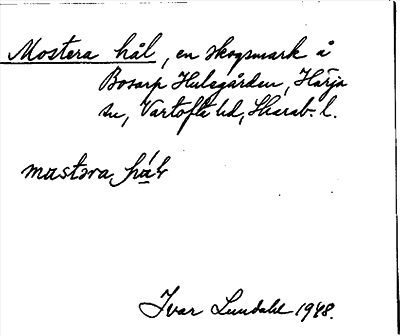 Mostera hål, en skogsmark å
Bosarp Hulegården, Härja
sn, Vartofta hd, Skarab. l.
mustəra hål
Ivar Lundahl 1948.